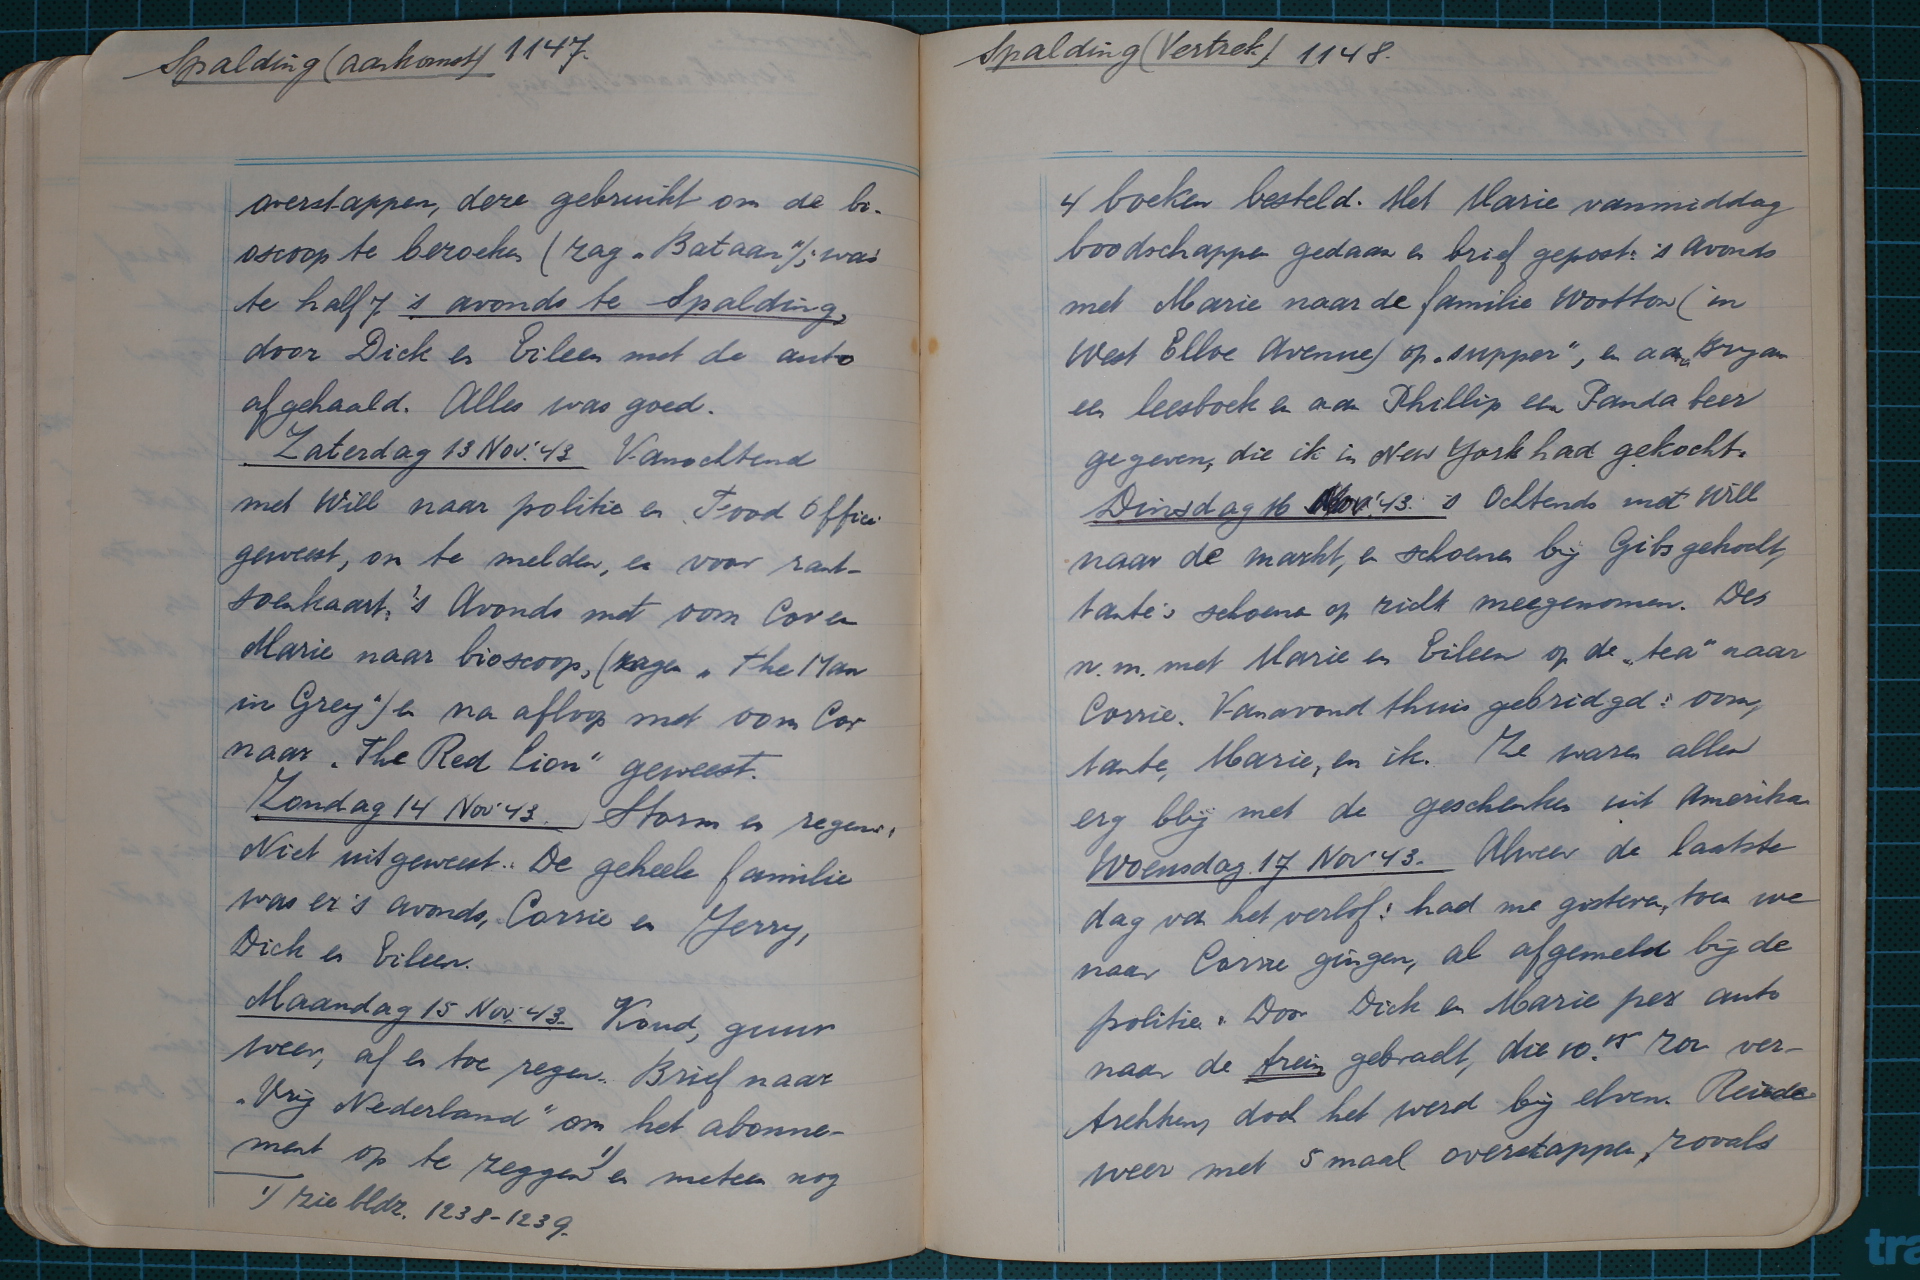 Spalding (aankomst) 1147.
overstappen, deze gebruikt om de bi-
oscoop te bezoeken (zag „Bataan"); was
te half 7 's avonds te Spalding,
door Dick en Eileen met de auto
afgehaald. Alles was goed.
Zaterdag 13 Nov. '43 Vanochtend
met Will naar politie en Food Office
geweest, om te melden, en voor rant-
soenkaart. 's Avonds met oom Cor en
Marie naar bioscoop, (zagen „The Man
in Grey") en na afloop met oom Cor
naar „The Red Lion" geweest.
Zondag 14 Nov '43. Storm en regen.
Niet uitgeweest. De geheele familie
was er 's avonds, Corrie en Jerry,
Dick en Eileen.
Maandag 15 Nov. '43. Koud, guur
weer, af en toe regen. Brief naar
„Vrij Nederland" om het abonne-
ment op te zeggen 1) en meteen nog
1) zie bldz. 1238-1239.
Spalding (Vertrek) 1148.
4 boeken besteld. Met Marie vanmiddag
boodschappen gedaan en brief gepost. 's Avonds
met Marie naar de familie Wootton (in
West Elloe Avenue) op „supper", en aan Bryan
een leesboek en aan Phillip een Panda beer
gegeven, die ik in New York had gekocht.
Dinsdag 16 Nov. '43. 's Ochtends met Will
naar de markt, en schoenen bij Gibs gekocht,
tante's schoenen op zicht meegenomen. Des
n.m. met Marie en Eileen op de „tea" naar
Corrie. Vanavond thuis gebridged: oom,
tante, Marie, en ik. Ze waren allen
erg blij met de geschenken uit Amerika
Woensdag 17 Nov '43. Alweer de laatste
dag van het verlof: had me gisteren, toen we
naar Corrie gingen, al afgemeld bij de
politie. Door Dick en Marie per auto
naar de trein gebracht, die 10.15 zou ver-
trekken, doch het werd bij elven. Reisde
weer met 5 maal overstappen, zooals